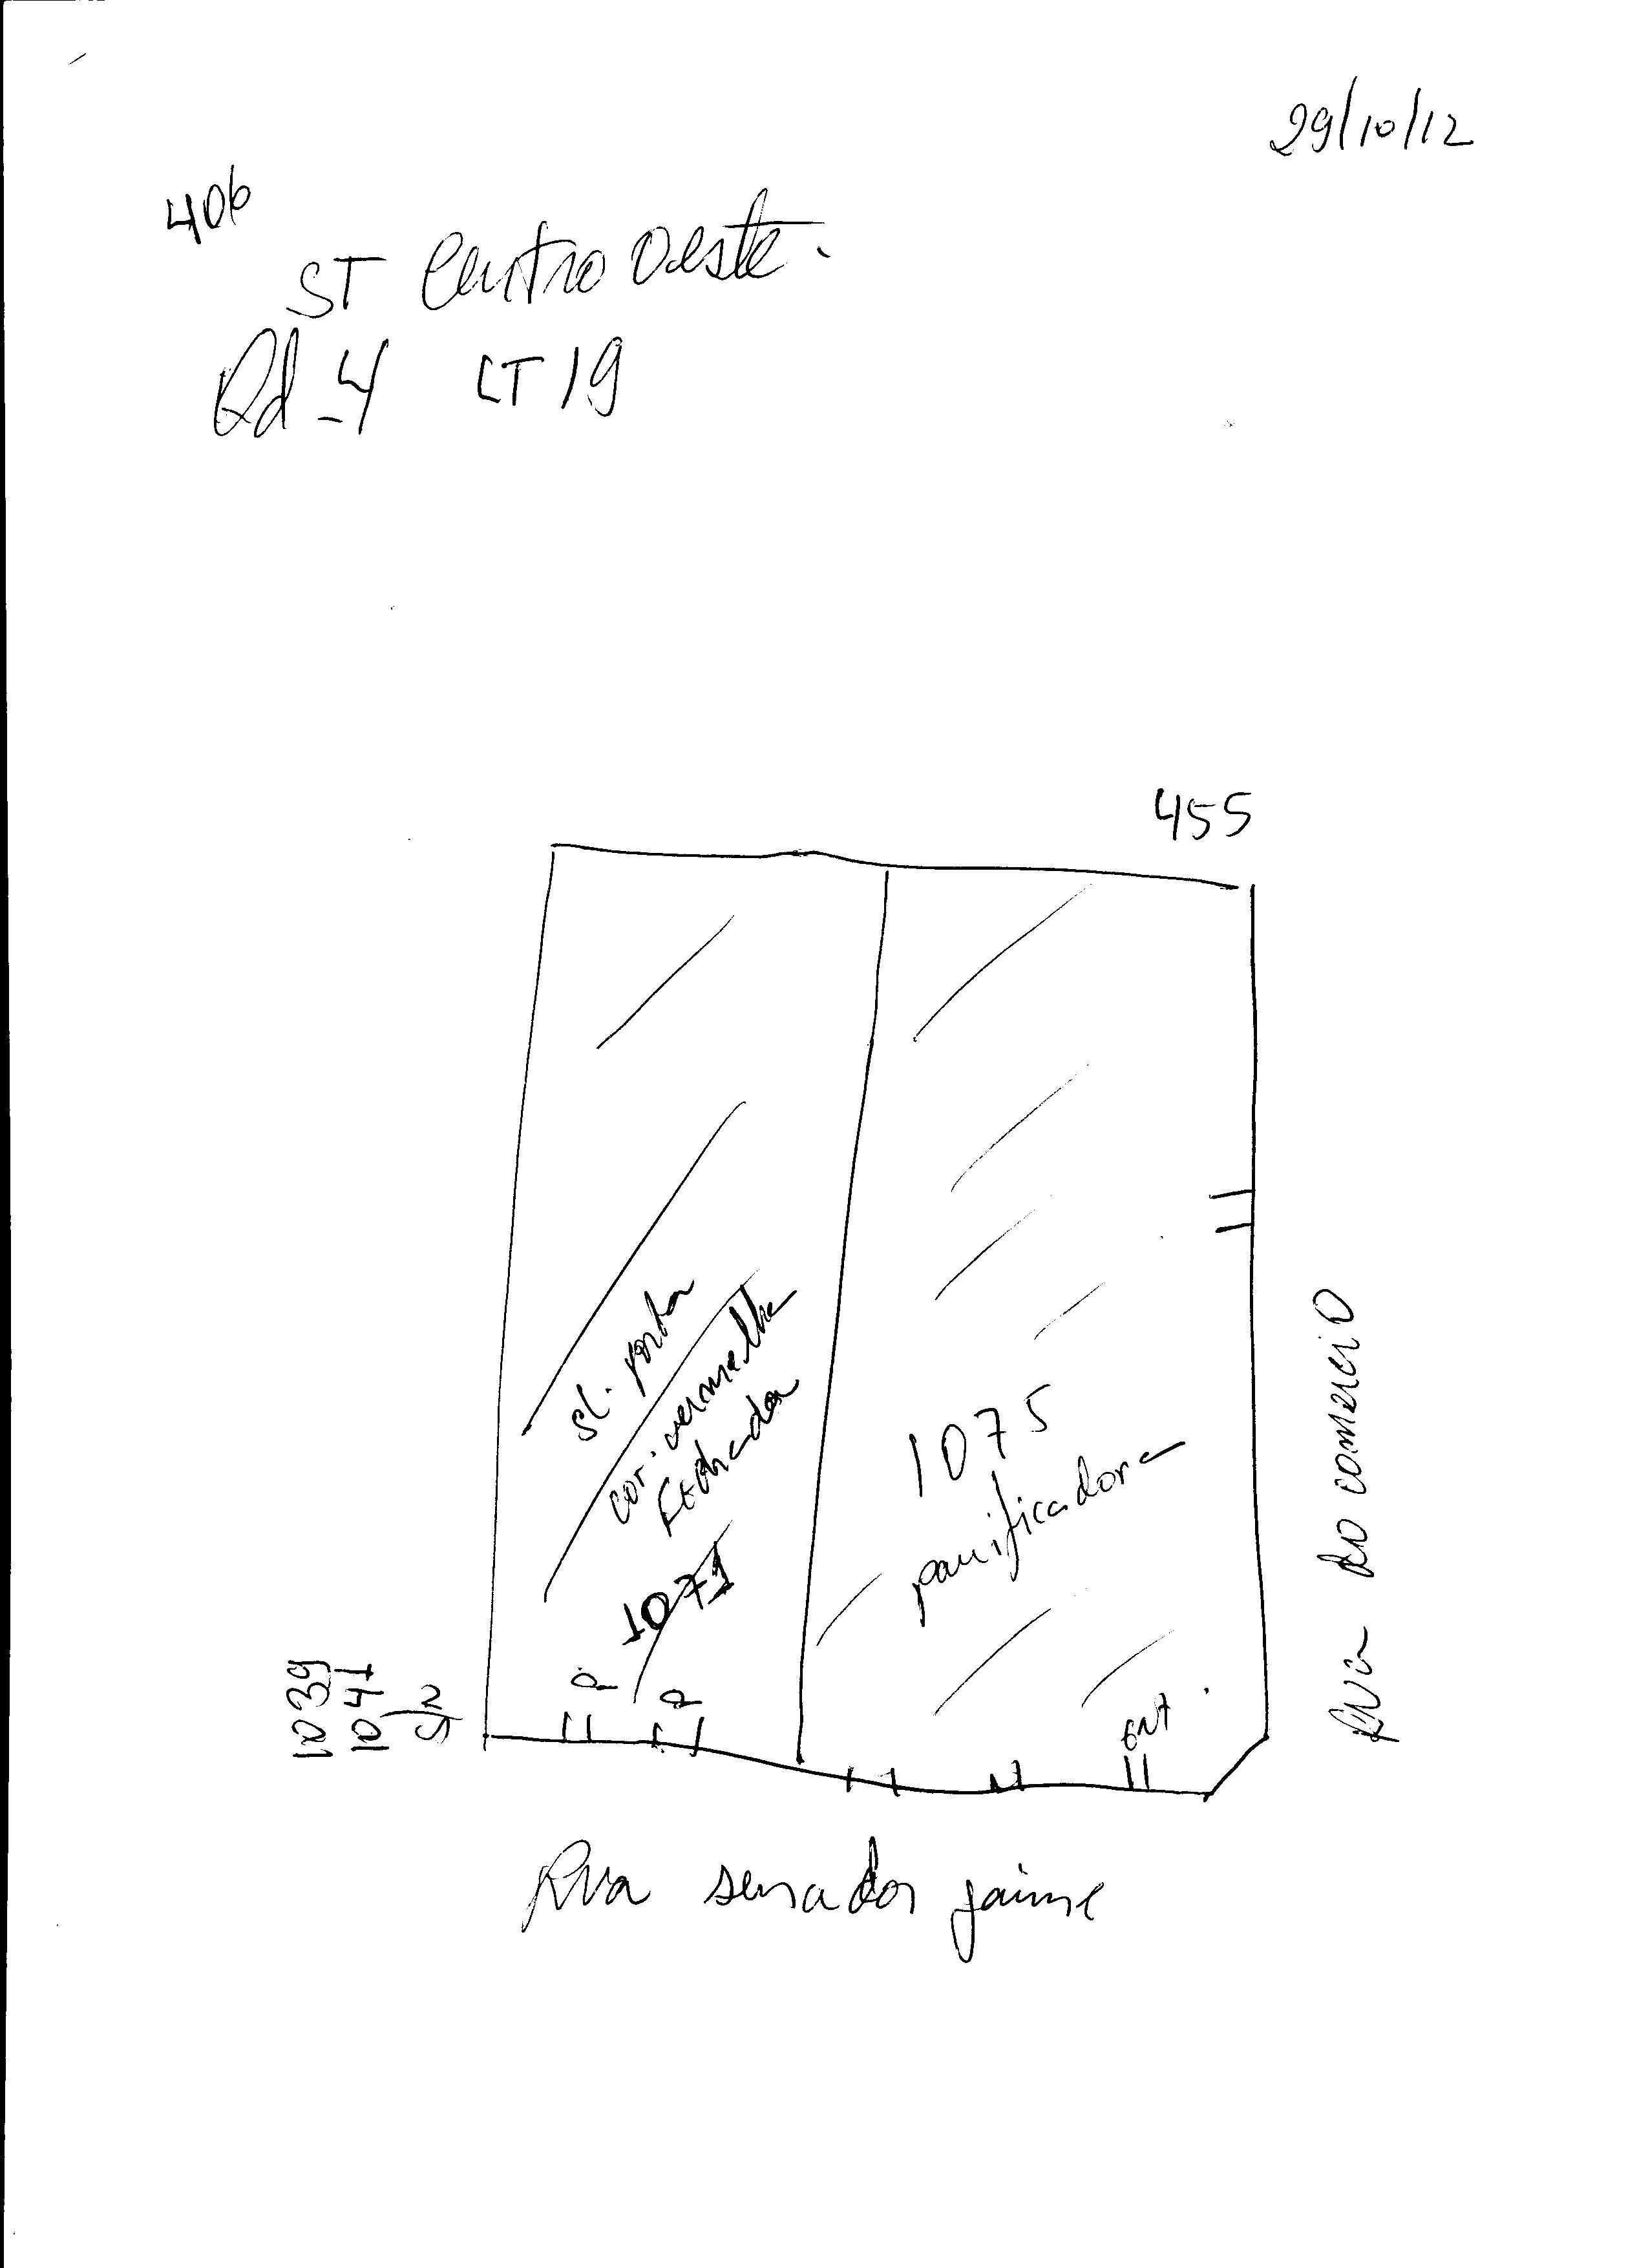 29/10/12
406
ST Centro Oeste.
Qd - 4 LT 19
455
sl. porta
cor. vermelha
Fechada
1071
1075
panificadora
Rua do comercio
1039
1041
S/N
P
P
ENT
Rua senador jaime